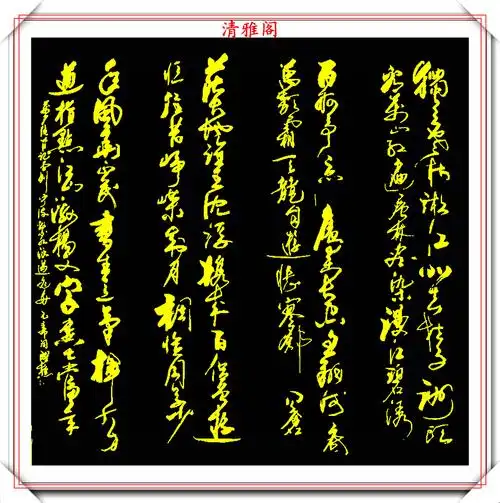 清雅阁
独立寒秋湘江北去橘子洲头
看万山红遍层林尽染漫江碧透
百舸争流鹰击长空鱼翔浅底
万类霜天竞自由怅寥廓问苍
茫大地谁主沉浮携来百侣曾游
忆往昔峥嵘岁月稠恰同学少
年风华正茂书生意气挥斥方
遒指点江山激扬文字粪土当年
万户侯曾记否到中流击水浪遏飞舟